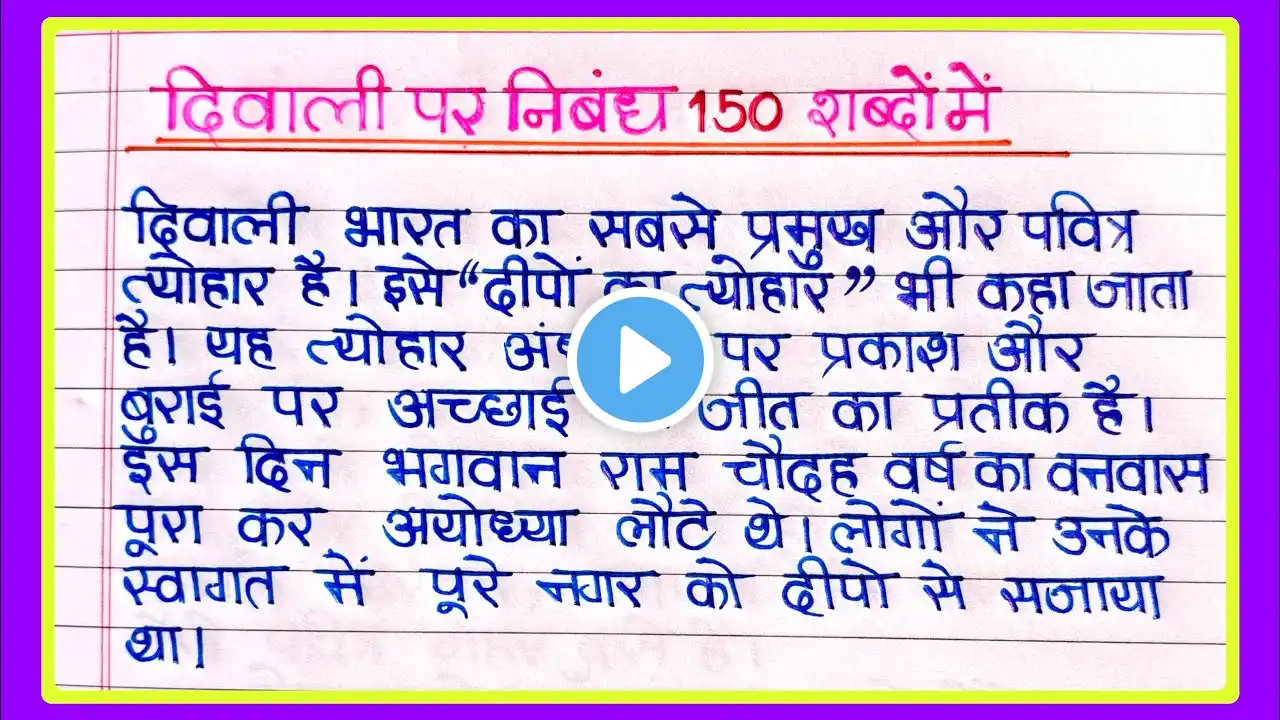 दिवाली पर निबंध 150 शब्दों में
दिवाली भारत का सबसे प्रमुख और पवित्र
त्योहार है। इसे “दीपों का त्योहार” भी कहा जाता
है। यह त्योहार पर प्रकाश और
बुराई पर अच्छाई जीत का प्रतीक है।
इस दिन भगवान राम चौदह वर्ष का वनवास
पूरा कर अयोध्या लौटे थे। लोगों ने उनके
स्वागत में पूरे नगर को दीपो से सजाया
था।